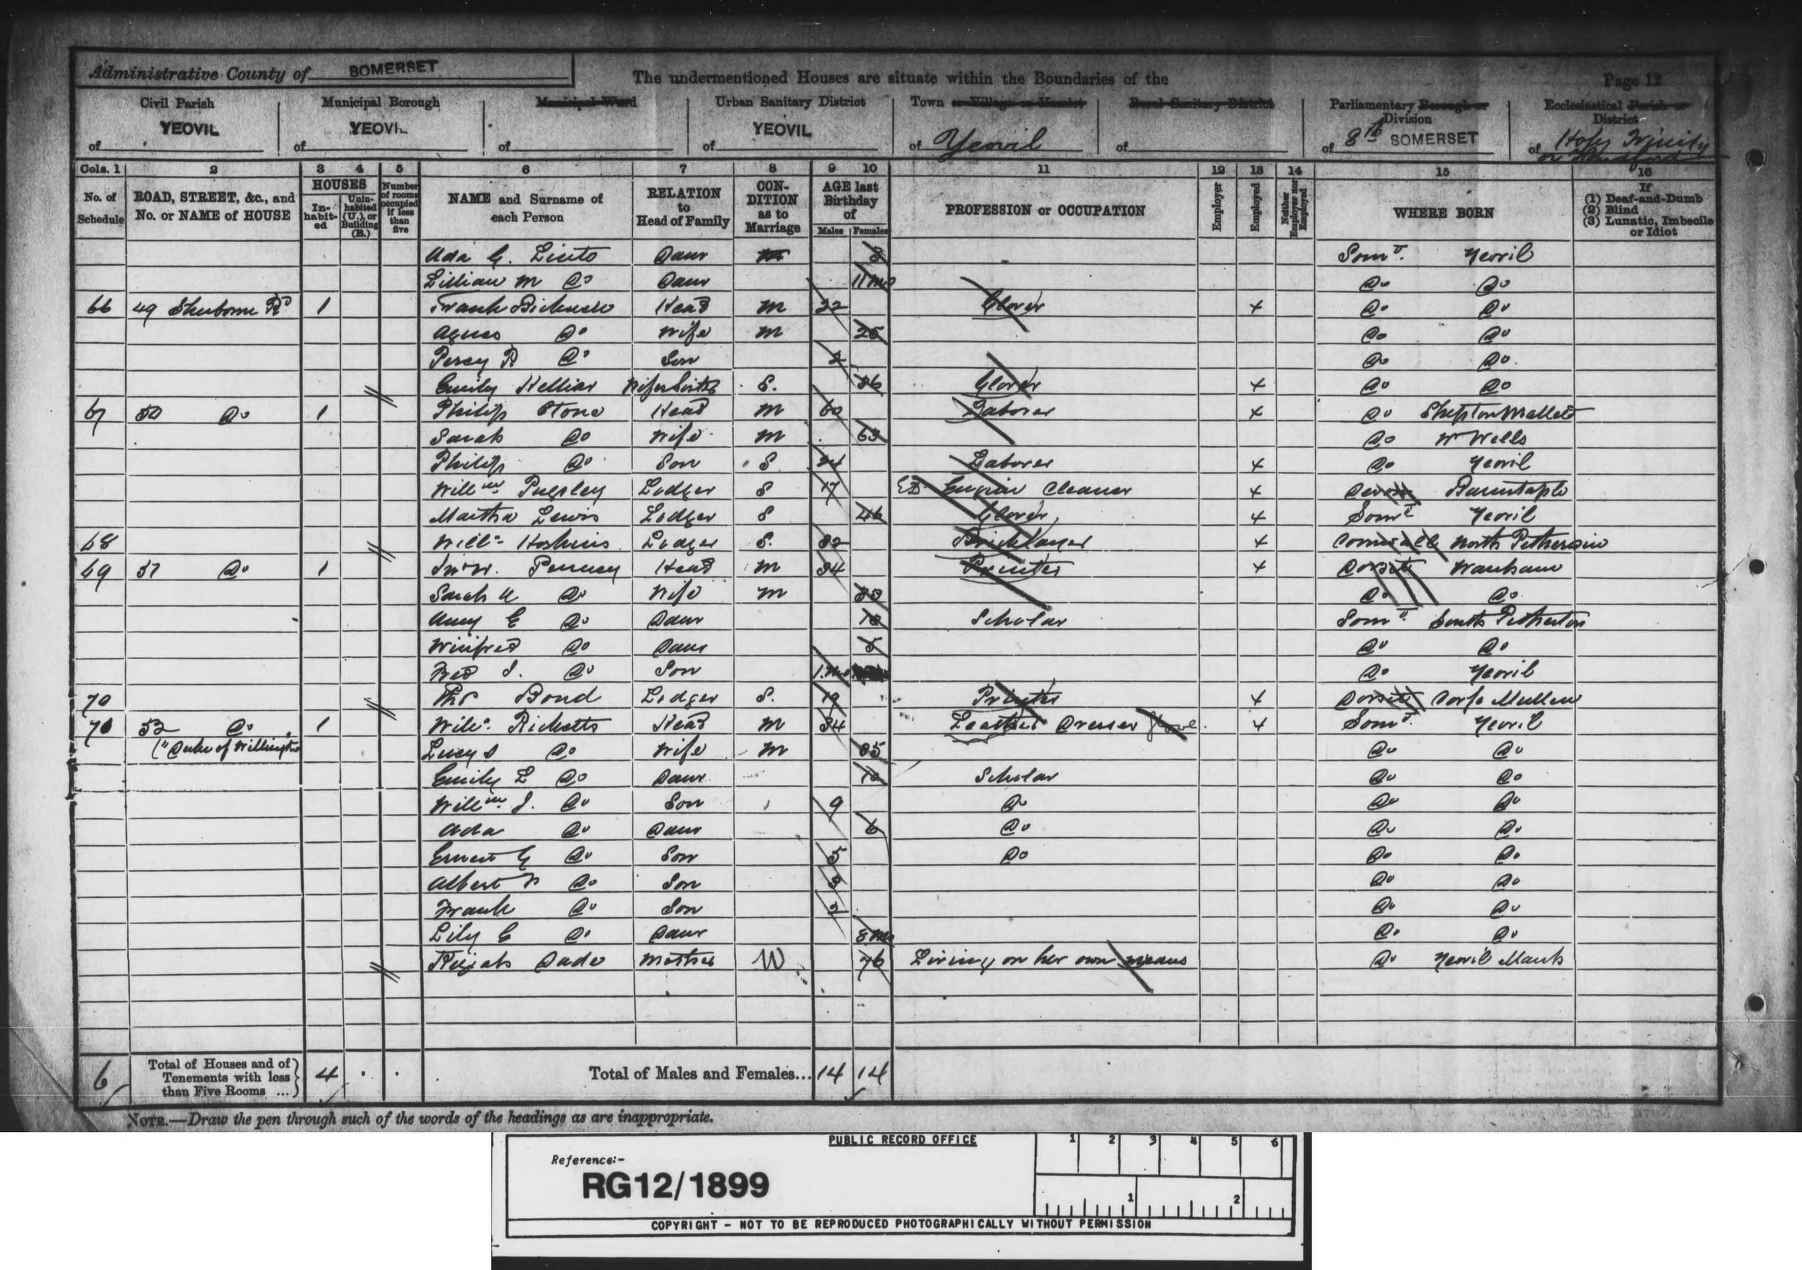 Administrative County of SOMERSET The undermentioned Houses are situate within the Boundaries of the Page 12
Civil Parish Municipal Borough Municipal Ward Urban Sanitary District Town or Village or Hamlet Rural Sanitary District Parliamentary Borough or Division Ecclesiastical Parish or District
of YEOVIL of YEOVIL of of YEOVIL of Yeovil of of 8th SOMERSET of Holy Trinity
Cols. 1 2 3 4 5 6 7 8 9 10 11 12 13 14 15 16
No. of Schedule ROAD, STREET, &c., and No. or NAME of HOUSE HOUSES Inhabited Uninhabited (U.), or Building (B.) Number of rooms occupied if less than five NAME and Surname of each Person RELATION to Head of Family CONDITION as to Marriage AGE last Birthday of Males Females PROFESSION or OCCUPATION Employer Employed Neither Employer nor Employed WHERE BORN If (1) Deaf-and-Dumb (2) Blind (3) Lunatic, Imbecile or Idiot
Ada G. Daur 3 Somt. Yeovil
Lillian M Do Daur 11 mo Do Do
66 49 Sherborne Rd 1 Frank Bicknell Head M 22 Glover x Do Do
Agnes Do Wife M 25 Do Do
Percy R Do Son 2 Do Do
Emily Helliar Wifes Sister S. 36 Glover x Do Do
67 50 Do 1 Philip Stone Head M 60 Laborer x Do Shepton Mallett
Sarah Do Wife M 63 Do Nr Wells
Philip Do Son S 24 Laborer x Do Yeovil
Willm Pugsley Lodger S 17 Engine Cleaner x Devon Barnstaple
Martha Lewis Lodger S 46 Glover x Somt Yeovil
68 Willm Hoskins Lodger S. 32 Bricklayer x Cornwall North Petherwin
69 51 Do 1 Penney Head M 34 Printer x Dorset Wareham
Sarah A Do Wife M Do Do
Amy E Do Daur 10 Scholar Somt South Petherton
Winifred Do Daur 5 Do Do
Fred J. Do Son 1 mo Do Yeovil
70 Thos Bond Lodger S. 19 Printer x Dorset Corfe Mullen
70 52 Do 1 Willm Ricketts Head M 34 Leather Dresser Glove x Somt. Yeovil
("Duke of Wellington Lucy S Do Wife M 35 Do Do
Emily L Do Daur 10 Scholar Do Do
Willm J. Do Son 9 Do Do Do
Ada Do Daur 6 Do Do Do
Ernest G Do Son 5 Do Do Do
Albert Do Son 3 Do Do
Frank Do Son 2 Do Do
Lily E Do Daur 8 mo Do Do
Keziah Dade Mother W 76 Living on her own means Do Yeovil Marsh
6 Total of Houses and of Tenements with less than Five Rooms ... 4 Total of Males and Females... 14 14
NOTE.—Draw the pen through such of the words of the headings as are inappropriate.
PUBLIC RECORD OFFICE 1 2 3 4 5 6
Reference:-
RG12/1899
1 2
COPYRIGHT - NOT TO BE REPRODUCED PHOTOGRAPHICALLY WITHOUT PERMISSION